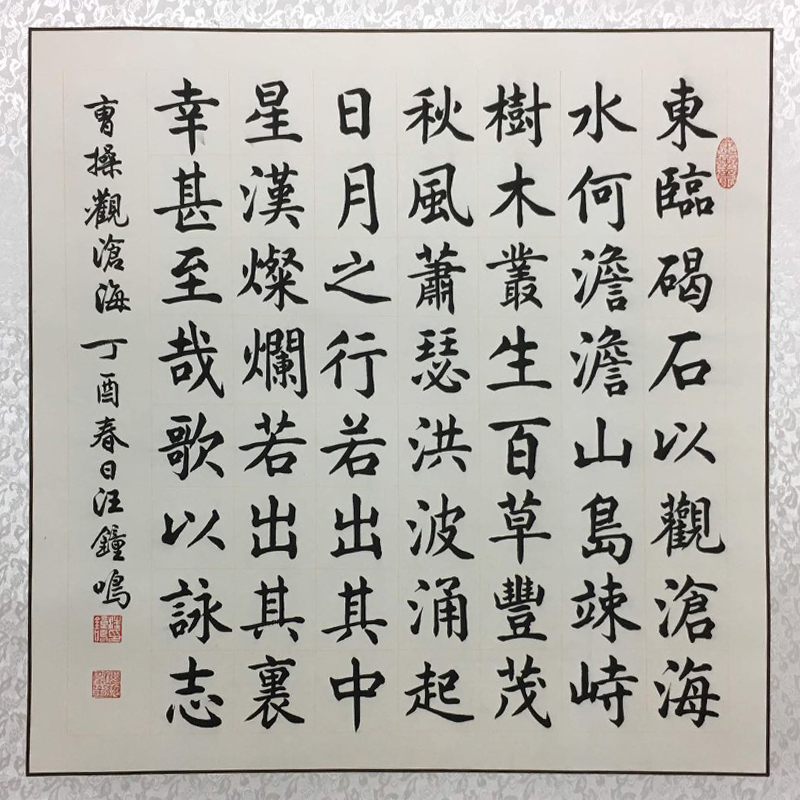 東臨碣石以觀滄海
水何澹澹山島竦峙
樹木叢生百草豐茂
秋風蕭瑟洪波涌起
日月之行若出其中
星漢燦爛若出其裏
幸甚至哉歌以詠志
曹操觀滄海丁酉春日汪鐘鳴